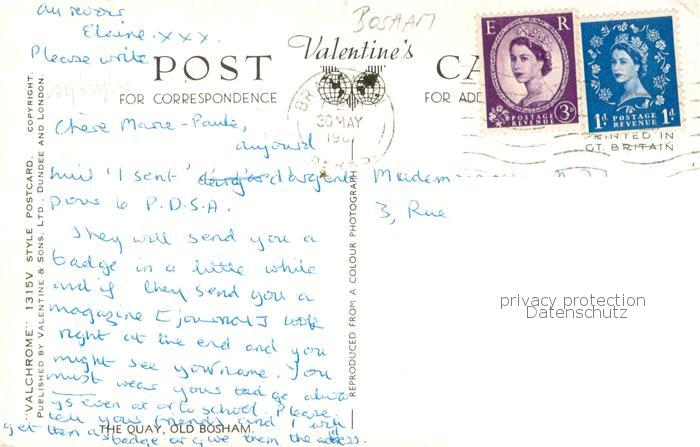 au revoir
Elaine.xxx.
Please write
BOSHAM
POST
Valentine's
FOR CORRESPONDENCE
FOR ADE
E R
POSTAGE REVENUE
3D
1D POSTAGE REVENUE 1D
PRINTED IN
GT. BRITAIN
30 MAY
196
Chère Marie-Paule,
aujourd
huit 'I sent' d'argent
pour le P.D.S.A.
They will send you a
badge in a little while
and if they send you a
magazine [journal] look
right at the end and you
might see your name. You
must wear your badge alwa
ys even at or to school. Please
tell your friends and I will
get them a badge or give them the address.
THE QUAY, OLD BOSHAM.
3, Rue
"VALCHROME" 1315V STYLE POSTCARD. COPYRIGHT.
PUBLISHED BY VALENTINE & SONS, LTD. DUNDEE AND LONDON.
REPRODUCED FROM A COLOUR PHOTOGRAPH
privacy protection
Datenschutz